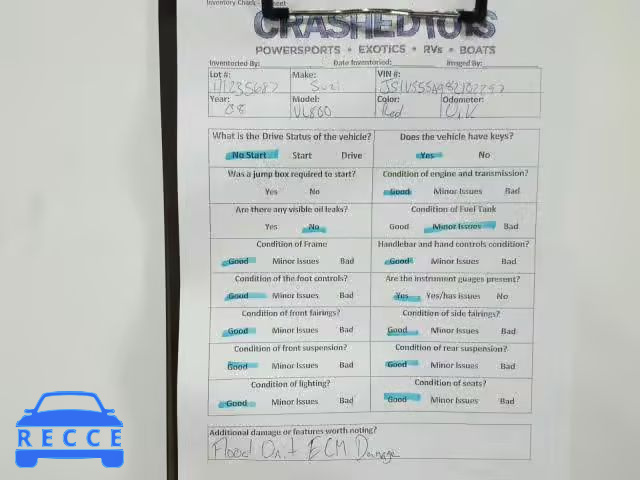 Inventory Check - Sheet
CRASHEDTOYS
POWERSPORTS • EXOTICS • RVs • BOATS
Inventoried By: Date Inventoried: Imaged By:
Lot #: Make: VIN #:
Suzi JS1VS55A982102297
Year: Model: Color: Odometer:
08 VL800 Red U.K
What is the Drive Status of the vehicle? Does the vehicle have keys?
No Start Start Drive Yes No
Was a jump box required to start? Condition of engine and transmission?
Yes No Good Minor Issues Bad
Are there any visible oil leaks? Condition of Fuel Tank
Yes No Good Minor Issues Bad
Condition of Frame Handlebar and hand controls condition?
Good Minor Issues Bad Good Minor Issues Bad
Condition of the foot controls? Are the instrument guages present?
Good Minor Issues Bad Yes Yes/has issues No
Condition of front fairings? Condition of side fairings?
Good Minor Issues Bad Good Minor Issues Bad
Condition of front suspension? Condition of rear suspension?
Good Minor Issues Bad Good Minor Issues Bad
Condition of lighting? Condition of seats?
Good Minor Issues Bad Good Minor Issues Bad
Additional damage or features worth noting?
Flood Unit ECM Damage
RECCE